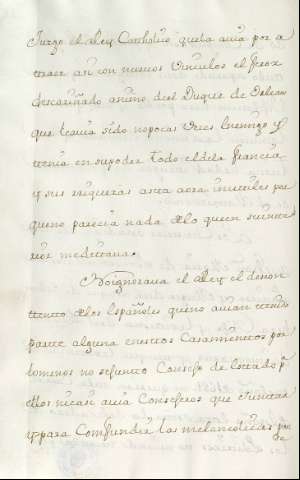 Juzgo el Rey Catholico, quela auia por a
traer asi con nueuos Vinculos el feroz
descariñado animo del Duque de Orleans
que le auia sido no pocas veces Enemigo y
tenia en su poder todo el dela francia,
y sus riqueças asta aora inutiles por
que no parecia nada de lo que en su inte
rior meditaua.
No ignoraua el Rey el descon
tento de los Españoles que no auian tenido
parte alguna en estos Casamientos por
lo menos no se junto Consejo de estado p.ª
ellos ni casi auia Consejeros que se juntar
y para Confundir las melancolicas